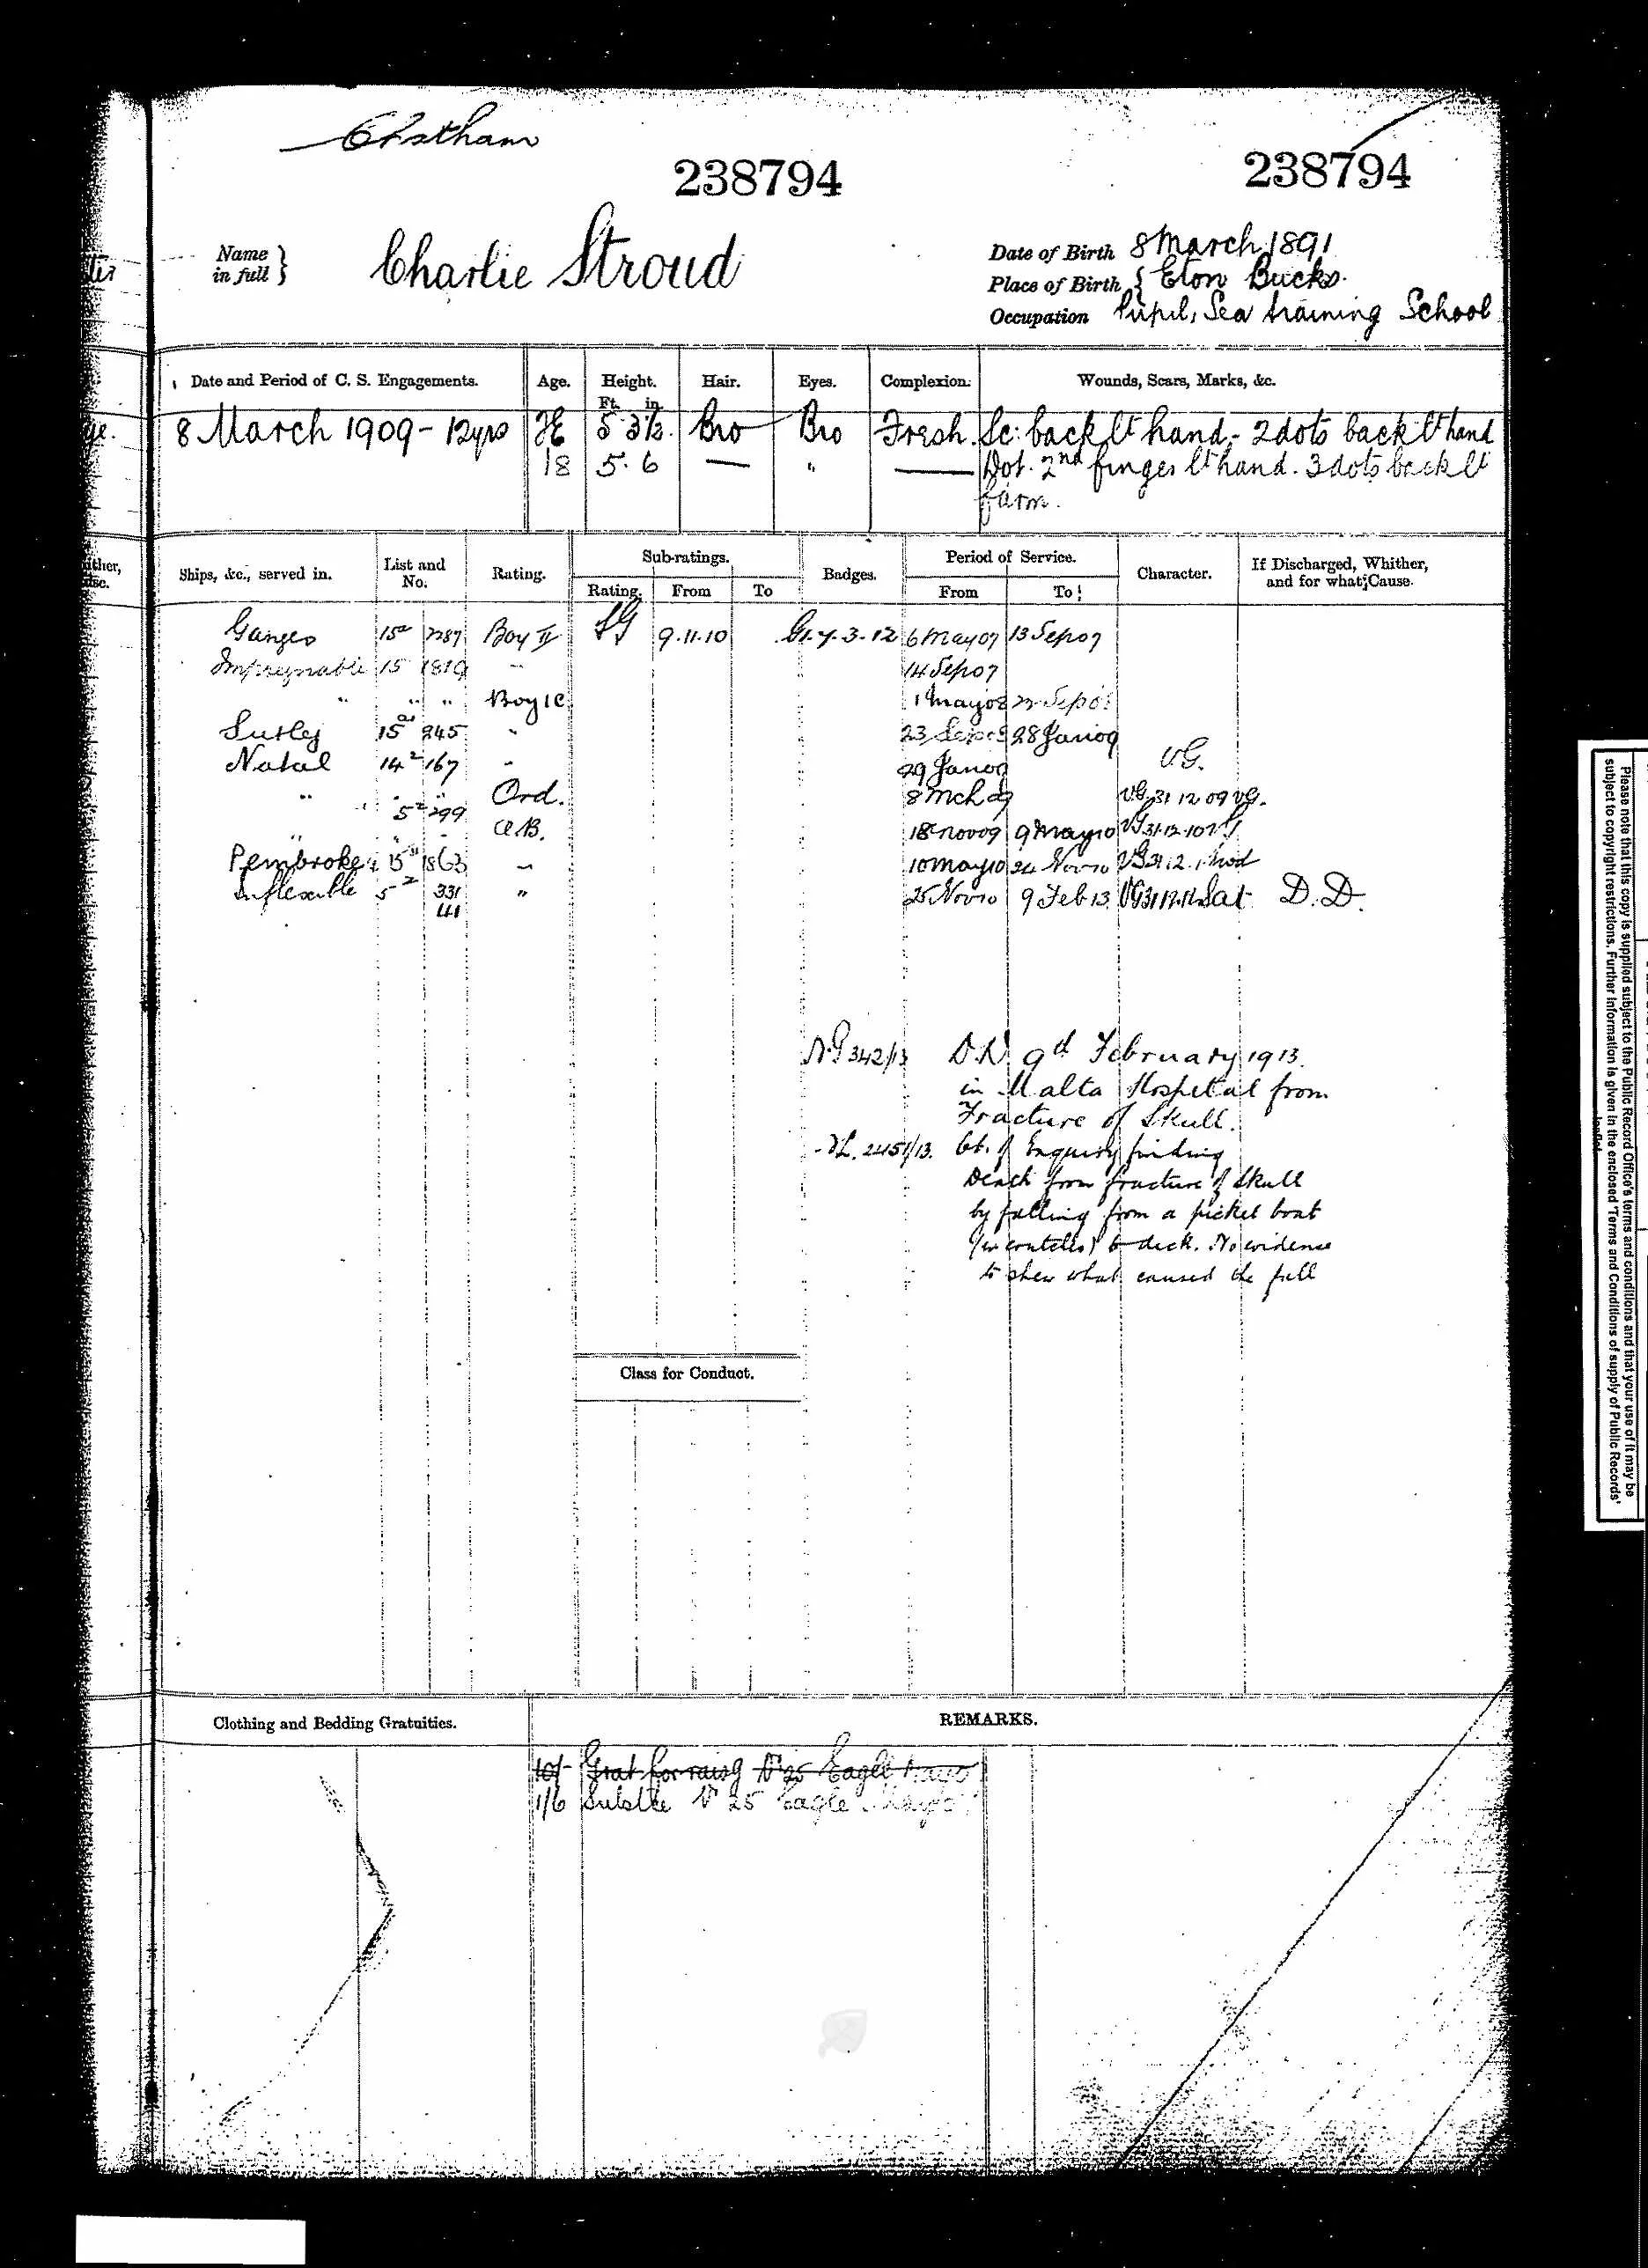 Chatham
238794 238794
Name in full } Charlie Stroud
Date of Birth 8 March 1891
Place of Birth { Eton Bucks.
Occupation Pupil, Sea training School
Date and Period of C. S. Engagements. Age. Height. Hair. Eyes. Complexion. Wounds, Scars, Marks, &c.
Ft. in.
8 March 1909 - 12 yrs 5 3½ Bro Bro Fresh. Sc: back lt hand - 2 dots back lt hand
18 5. 6 — " — Dot. 2nd finger lt hand. 3 dots back lt
f arm.
Ships, &c., served in. List and No. Rating. Sub-ratings. Badges. Period of Service. Character. If Discharged, Whither, and for what Cause.
Rating. From To From To
Ganges 15a 7787 Boy II SG 9.11.10 G1. 7.3.12 6 May 07 13 Sep 07
Impregnable 15 1819 " 14 Sep 07
" " " Boy 1c. 1 May 08 22 Sep 08
Sutlej 15 245 " 23 Sep 08 28 Jan 09
Natal 14² 167 " 29 Jan 09 VG.
" " " Ord. 8 Mch 09 VG 31 12 09 VG.
5² 299
" " " A.B. 18 Nov 09 9 May 10 VG 31.12.10
Pembroke 15 1863 " 10 May 10 24 Nov 10 VG 31.12. Mod
Inflexible 5² 331 " 25 Nov 10 9 Feb 13 VG 31.12.12 Sat D.D.
41
N.G 342/13 D.D. 9th February 1913.
in Malta Hospital from
Fracture of Skull.
N.L. 2451/13. Ct. of Enquiry finding
Death from fracture of Skull
by falling from a picket boat
(in crutches) to deck. No evidence
to shew what caused the fall
Class for Conduct.
Clothing and Bedding Gratuities. REMARKS.
10/- Grat for raisg Vr 25 Eagle
1/6 Substce Vr 25 Eagle
Please note that this copy is supplied subject to the Public Record Office's terms and conditions and that your use of it may be
subject to copyright restrictions. Further information is given in the enclosed 'Terms and Conditions of supply of Public Records'
leaflet